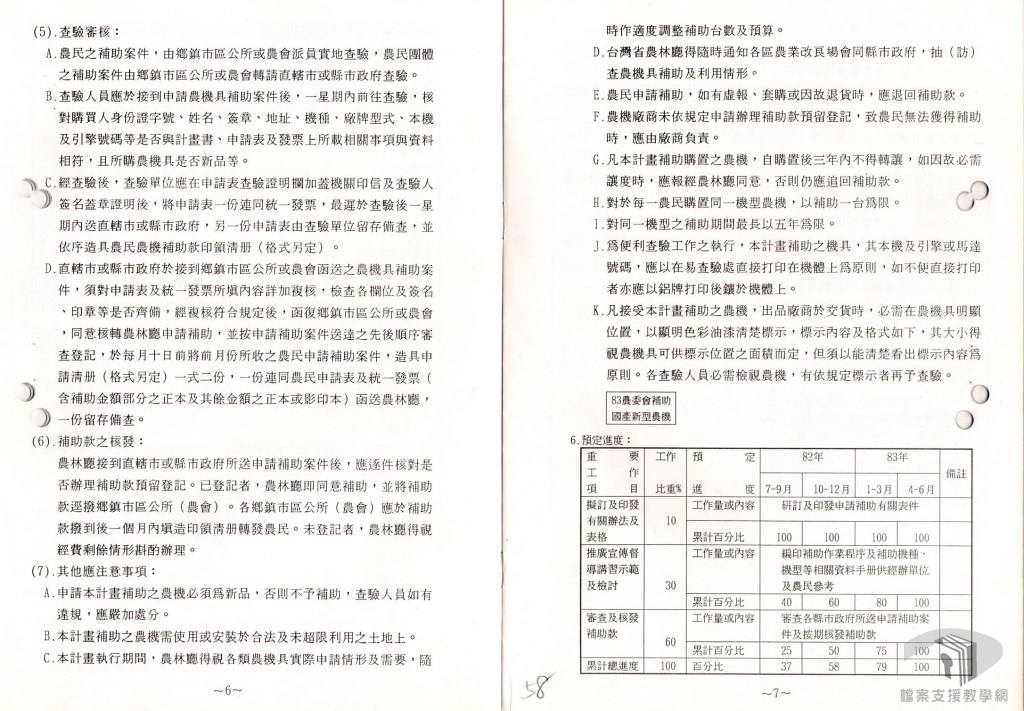 (5).查驗審核：
A.農民之補助案件，由鄉鎮市區公所或農會派員實地查驗，農民團體
之補助案件由鄉鎮市區公所或農會轉請直轄市或縣市政府查驗。
B.查驗人員應於接到申請農機具補助案件後，一星期內前往查驗，核
對購買人身份證字號、姓名、簽章、地址、機種、廠牌型式、本機
及引擎號碼等是否與計畫書、申請表及發票上所載相關事項與資料
相符，且所購農機具是否新品等。
C.經查驗後，查驗單位應在申請表查驗證明欄加蓋機關印信及查驗人
簽名蓋章證明後，將申請表一份連同統一發票，最遲於查驗後一星
期內送直轄市或縣市政府，另一份申請表由查驗單位留存備查，並
依序造具農民農機補助款印領清册（格式另定）。
D.直轄市或縣市政府於接到鄉鎮市區公所或農會函送之農機具補助案
件，須對申請表及統一發票所填內容詳加複核，檢查各欄位及簽名
、印章等是否齊備，經複核符合規定後，函復鄉鎮市區公所或農會
，同意核轉農林廳申請補助，並按申請補助案件送達之先後順序審
查登記，於每月十日前將前月份所收之農民申請補助案件，造具申
請清册（格式另定）一式二份，一份連同農民申請表及統一發票（
含補助金額部分之正本及其餘金額之正本或影印本）函送農林廳，
一份留存備查。
(6).補助款之核發：
農林廳接到直轄市或縣市政府所送申請補助案件後，應逐件核對是
否辦理補助款預留登記。已登記者，農林廳即同意補助，並將補助
款逕撥鄉鎮市區公所（農會）。各鄉鎮市區公所（農會）應於補助
款撥到後一個月內填造印領清册轉發農民。未登記者，農林廳得視
經費剩餘情形斟酌辦理。
(7).其他應注意事項：
A.申請本計畫補助之農機必須爲新品，否則不予補助，查驗人員如有
違規，應嚴加處分。
B.本計畫補助之農機需使用或安裝於合法及未超限利用之土地上。
C.本計畫執行期間，農林廳得視各類農機具實際申請情形及需要，隨
～6～
時作適度調整補助台數及預算。
D.台灣省農林廳得隨時通知各區農業改良場會同縣市政府，抽（訪）
查農機具補助及利用情形。
E.農民申請補助，如有虛報、套購或因故退貨時，應退回補助款。
F.農機廠商未依規定申請辦理補助款預留登記，致農民無法獲得補助
時，應由廠商負責。
G.凡本計畫補助購置之農機，自購置後三年內不得轉讓，如因故必需
讓度時，應報經農林廳同意，否則仍應追回補助款。
H.對於每一農民購置同一機型農機，以補助一台爲限。
I.對同一機型之補助期間最長以五年爲限。
J.爲便利查驗工作之執行，本計畫補助之機具，其本機及引擎或馬達
號碼，應以在易查驗處直接打印在機體上爲原則，如不便直接打印
者亦應以鋁牌打印後鑲於機體上。
K.凡接受本計畫補助之農機，出品廠商於交貨時，必需在農機具明顯
位置，以顯明色彩油漆清楚標示，標示內容及格式如下，其大小得
視農機具可供標示位置之面積而定，但須以能清楚看出標示內容爲
原則。各查驗人員必需檢視農機，有依規定標示者再予查驗。
83農委會補助
國產新型農機
6.預定進度：
重 要 工作 預 定 82年 83年 備註
工 作
項 目 比重% 進 度 7-9月 10-12月 1-3月 4-6月
擬訂及印發 工作量或內容 研訂及印發申請補助有關表件
有關辦法及 10
表格 累計百分比 100 100 100 100
推廣宣傳督 工作量或內容 編印補助作業程序及補助機種、
導講習示範 機型等相關資料手册供經辦單位
及檢討 30 及農民參考
累計百分比 40 60 80 100
審查及核發 工作量或內容 審查各縣市政府所送申請補助案
補助款 60 件及按期核發補助款
累計百分比 25 50 75 100
累計總進度 100 百分比 37 58 79 100
～7～
58
檔案支援教學網